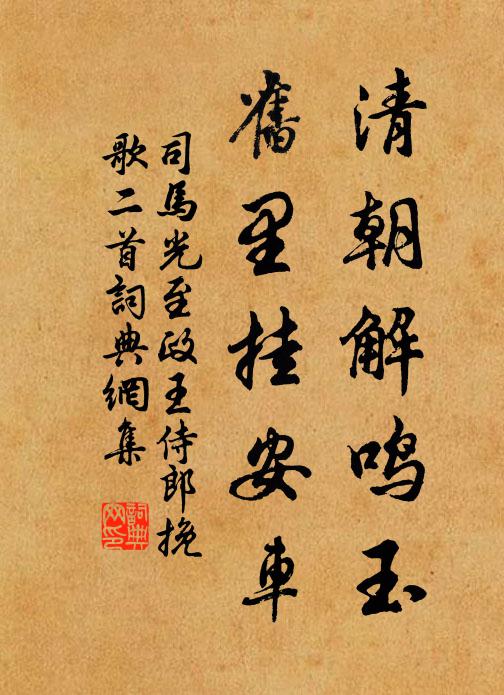 清朝解鸣玉
舊里挂安車
司馬光至政王侍郎挽
歌二首詞典網集
詞典网印